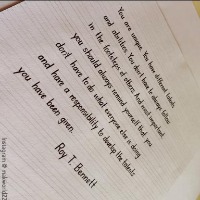 You are unique. You have different talents
and abilities. You don't have to always follow
in the footsteps of others. And most important,
you should always remind yourself that you
don't have to do what everyone else is doing
and have a responsibility to develop the talents
you have been given.
Roy T. Bennett